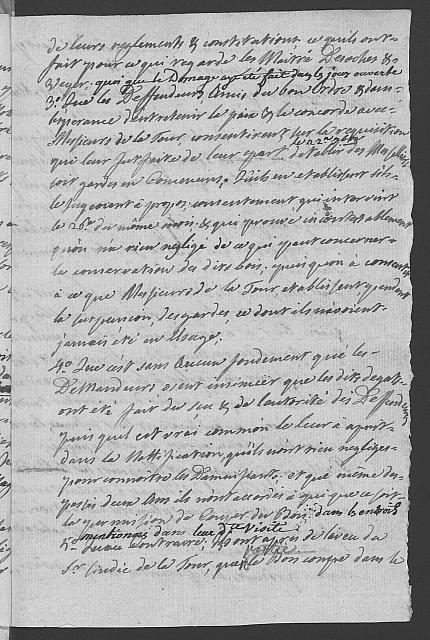 de leurs reglements & constitutions ce qu'ils ont
fait pour ce qui regarde les Maitre Desoches &
Veyer, quoi que le Domage aye été fait dans les jours ouverts
3º Que les Deffendeurs, Amis du bon Ordre & dans
l'esperance d'entretenir la paix & la concorde avec
Messieurs de la Tour, consentirent sur la requisition
le 22e 9bre
que leur fut faite de leur part d'etablir des
soit gardes en Commun, s'ils en etablissent
le jugeoient à propos, consentement qui intervint
le 26e du même mois, & qui prouve incontestablement
qu'on n'a rien negligé de ce qui peut concerner
la conservation des dits bois, puis qu'on à consenti
à ce que Messieurs de la Tour, etablissent pendent
la suspencion, des gardes, ce dont ils n'avoient
jamais été en Usage;
4º Que c'est sans Aucun fondement que les
Demandeurs osent insinuer que les dits degats
ont été fait du seu & de l'autorité des Deffendeurs
puis qu'il est vrai comme on le leur à aporté
dans la Nottification, qu'ils n'ont rien negligés
pour connoitre les Damnifiants, et que même de-
puis deux Ans ils n'ont accordés à qui que ce soit
la permission de Couper du Bois dans les endroits
mentionnés dans leur dte Visite
5º
Sr Sindic de la Tour, que le Bois coupé dans le